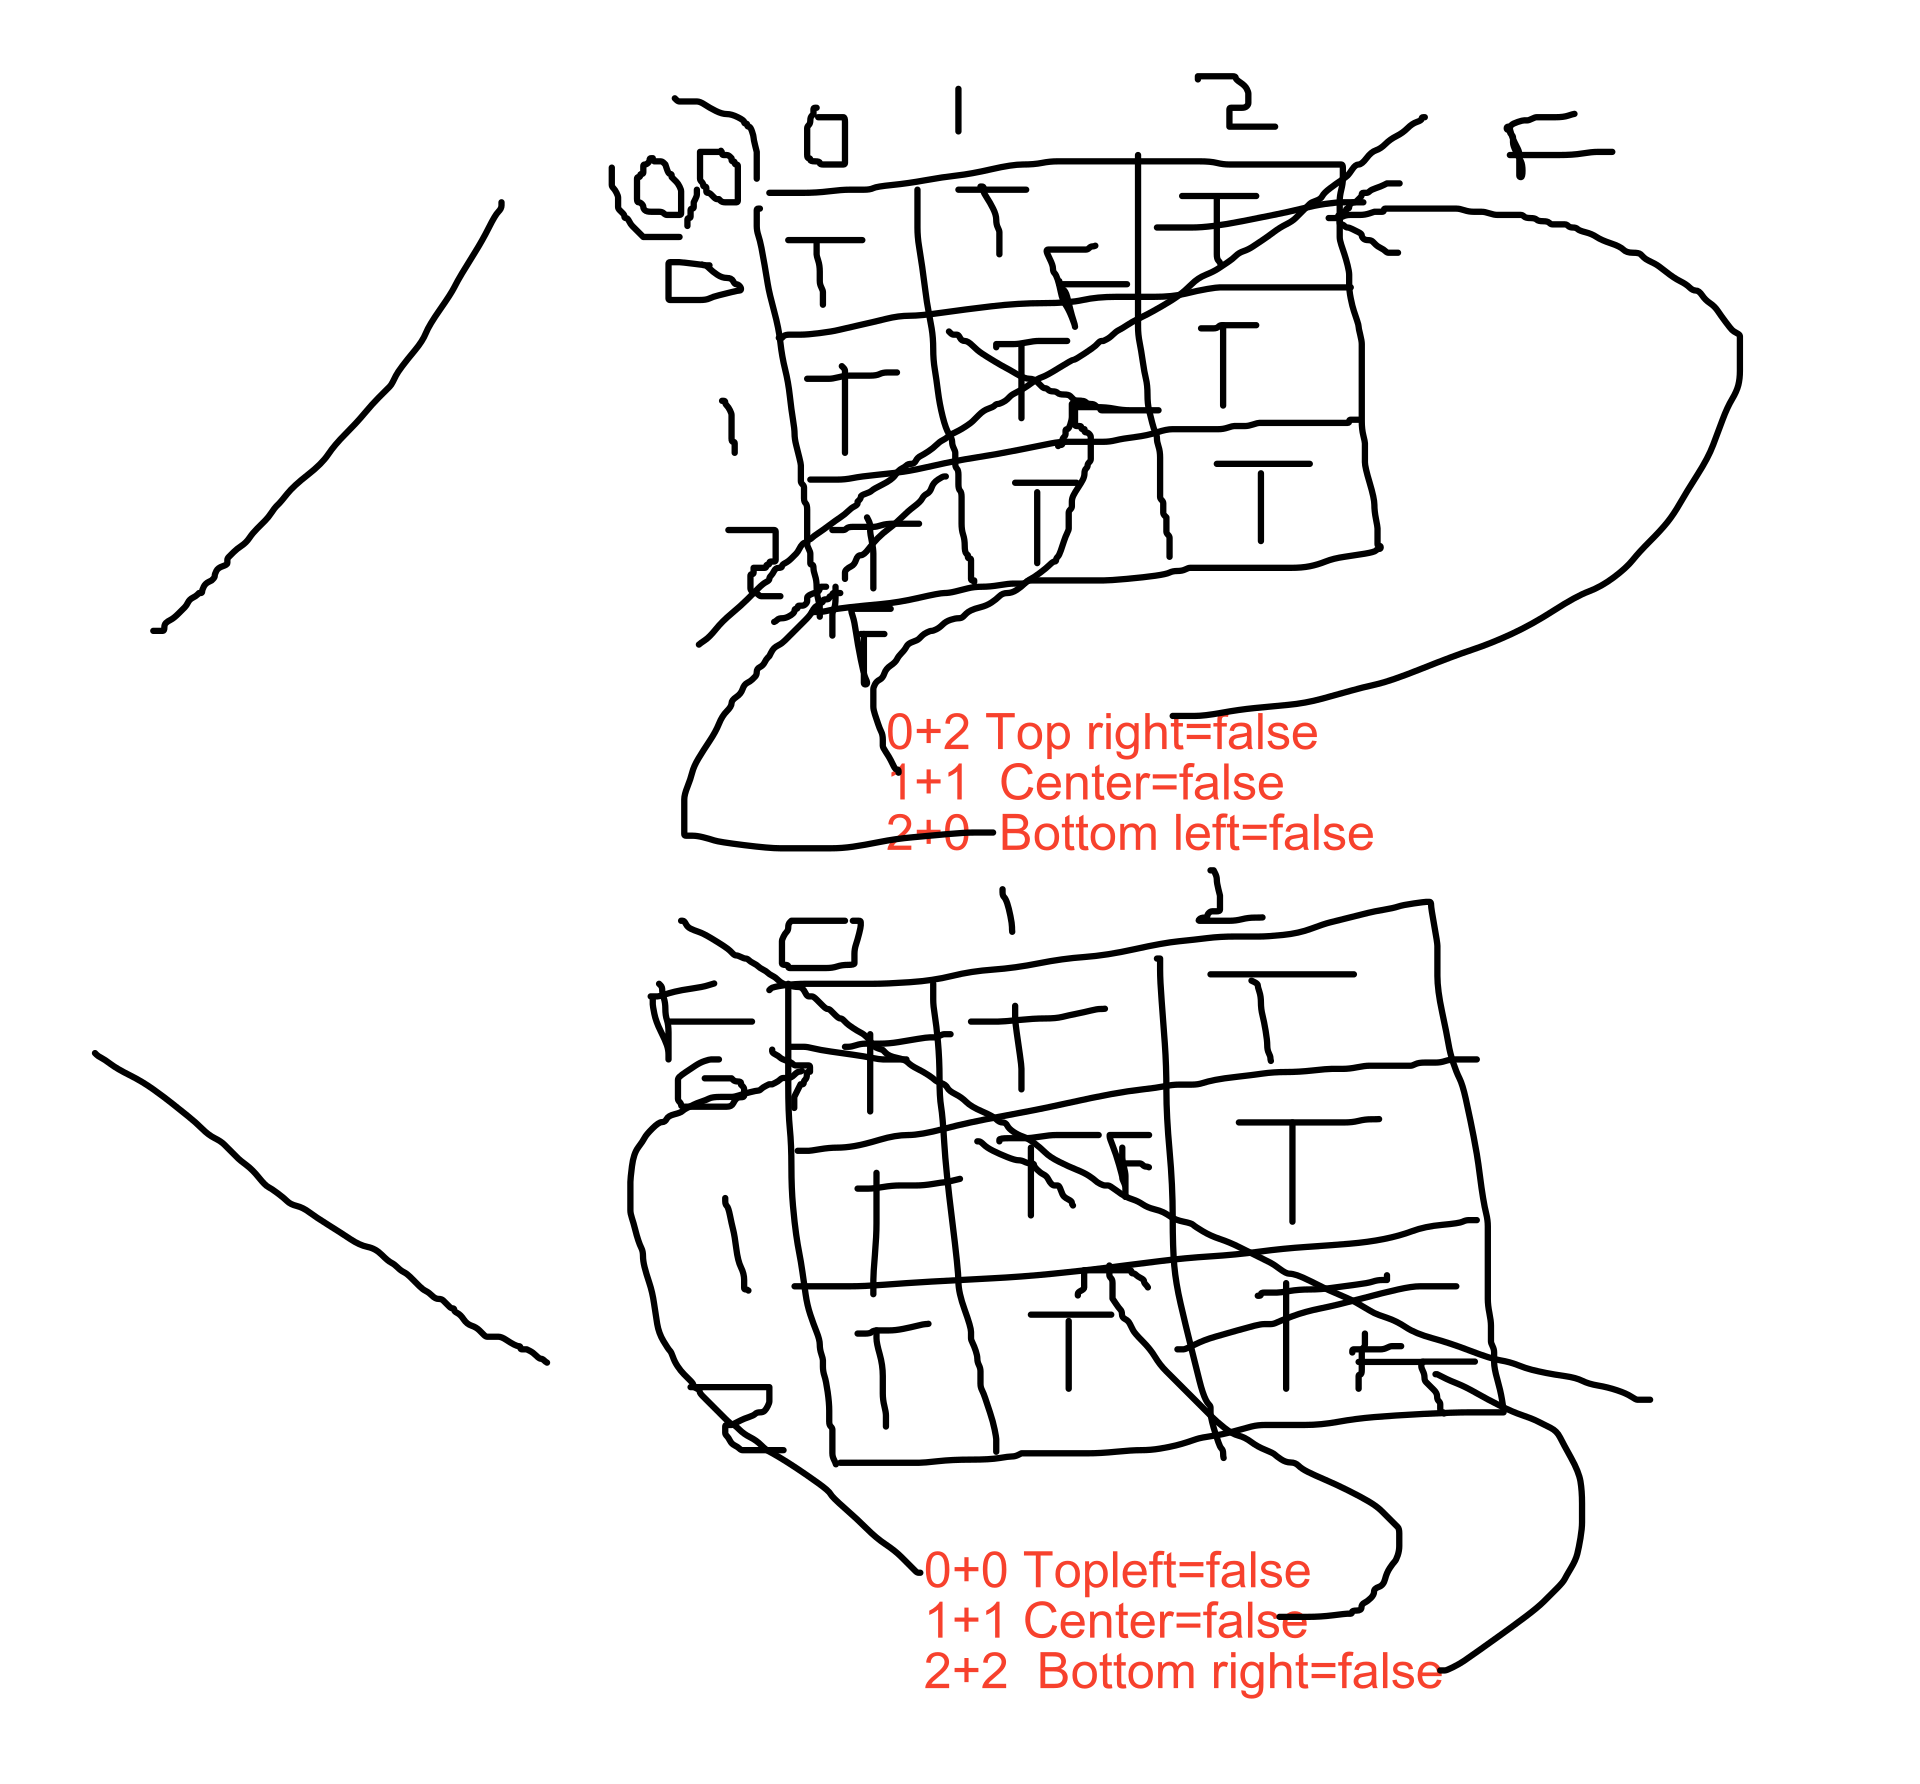 0 1 2 F
T T T
F
1 T T T
2 T T T
F
0+2 Top right=false
1+1 Center=false
2+0 Bottom left=false
0 1 2
F T T T
0
T F T
1 T
2 T T T
F
0+0 Topleft=false
1+1 Center=false
2+2 Bottom right=false